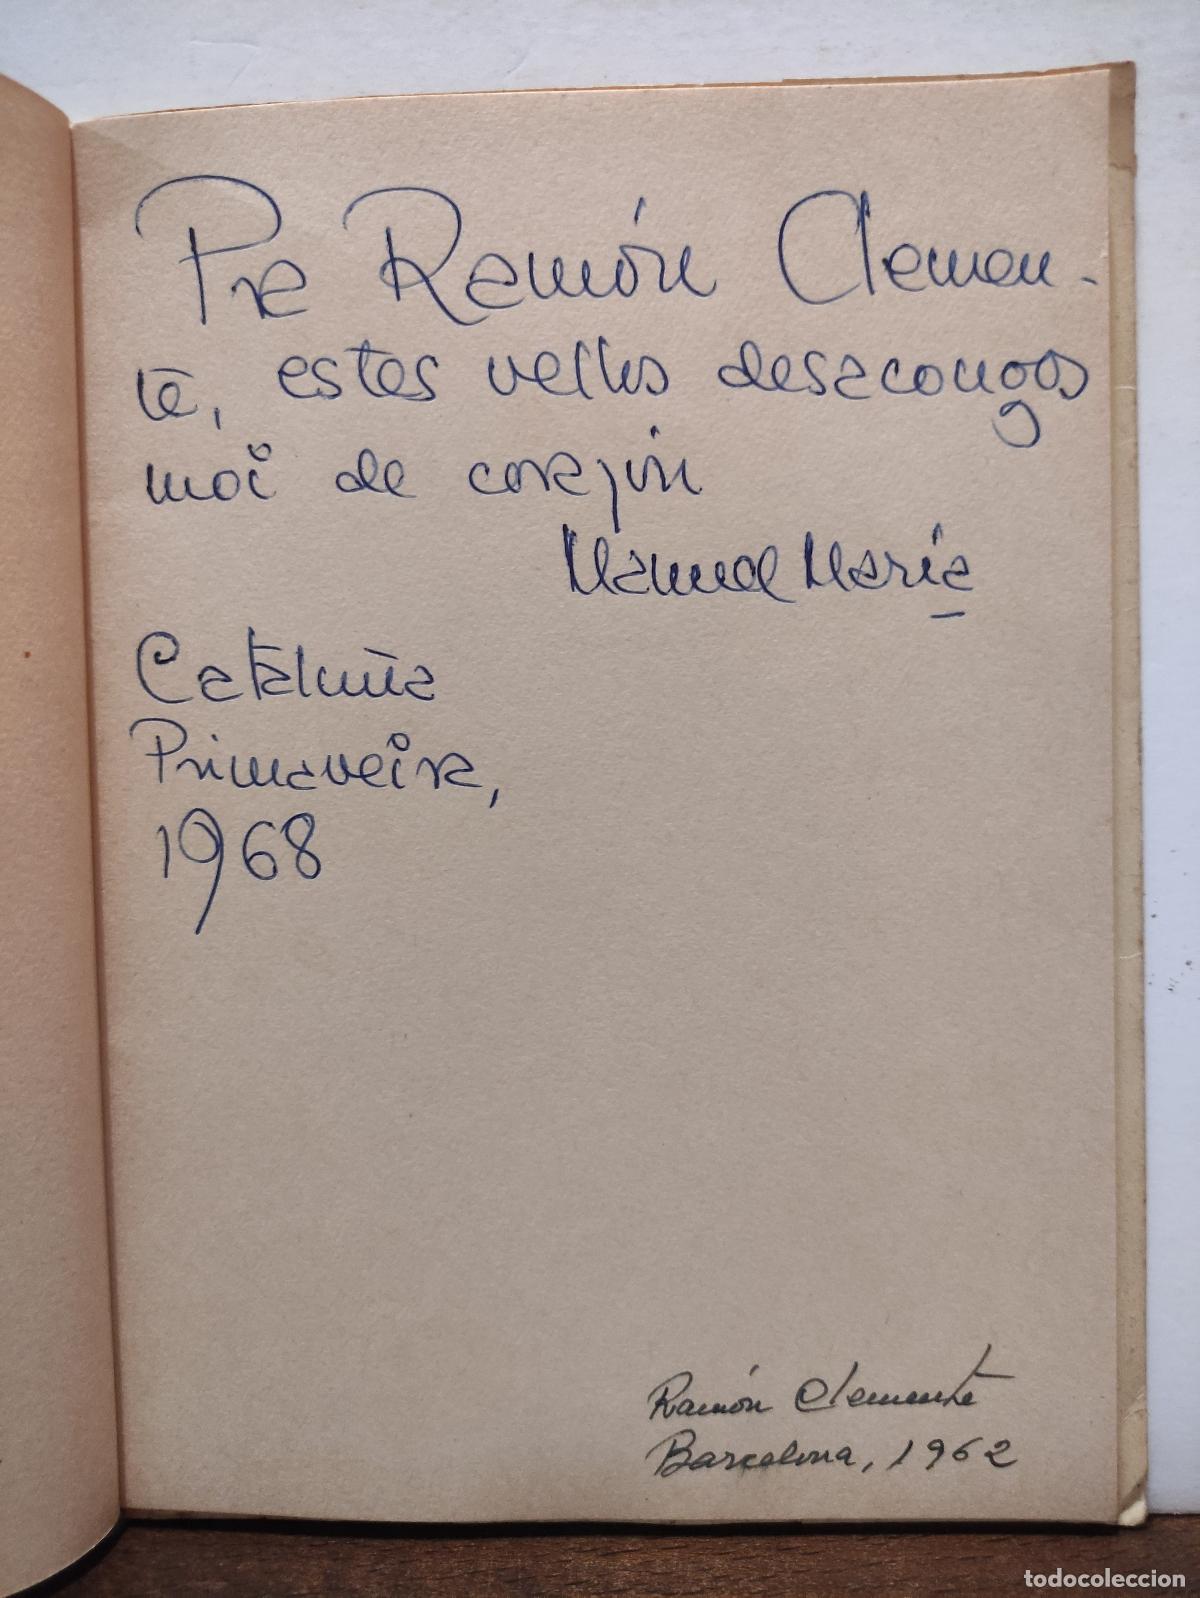 Pra Ramón Clemen-
te, estes vellos desacougos
moi de corazón
Manuel María
Cataluña
Primaveira,
1968
Ramón Clemente
Barcelona, 1962
todocoleccion